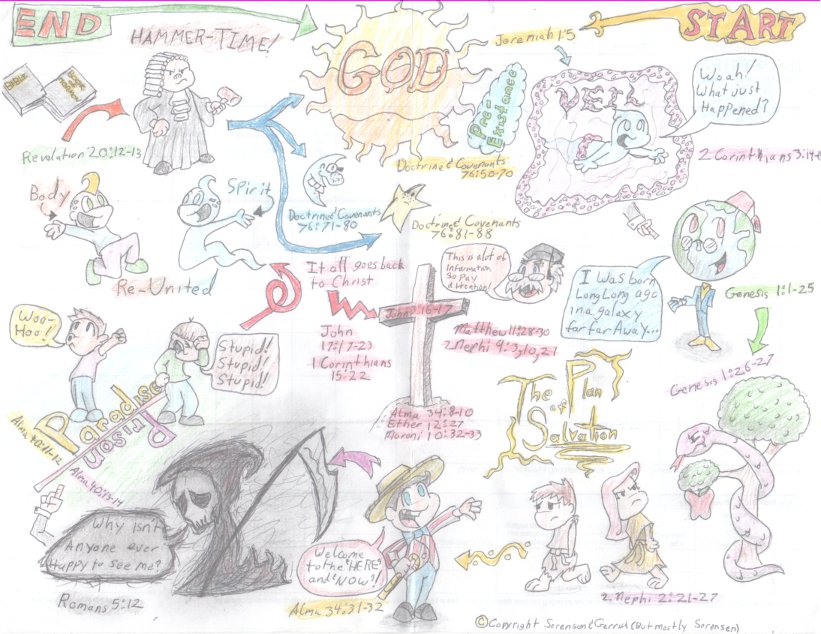 END
HAMMER-TIME!
GOD
START
Jeremiah 1:5
Pre-
Existance
VEIL
Woah!
What just
Happened?
2 Corinthians 3:14-
BIBLE
Revolation 20:12-13
Doctrine & Covenants
76:50-70
Body
Spirit
Doctrine & Covenants
76:71-80
Doctrine & Covenants
76:81-88
Re-United
It all goes back
to Christ
This is alot of
Information
So Pay
Attention!
I Was born
Long Long ago
in a galaxy
far far Away...
Genesis 1:1-25
Woo-
Hoo!
Stupid!
Stupid!
Stupid!
John 3:16-17
John
17:17-23
1 Corinthians
15:22
Matthew 11:28-30
2 Nephi 9:
Genesis 1:26-27
Paradise
Prison
Alma 40:11-12
Alma 40:13-14
The Plan
of
Salvation
Alma 34:8-10
Ether 12:27
Moroni 10:32-33
Why isn't
Anyone ever
Happy to see me?
Romans 5:12
Welcome
to the "HERE"
and "NOW"!
Alma 34:31-32
2 Nephi 2:21-27
©Copyright Sorenson & Garrett (But mostly Sorensen)